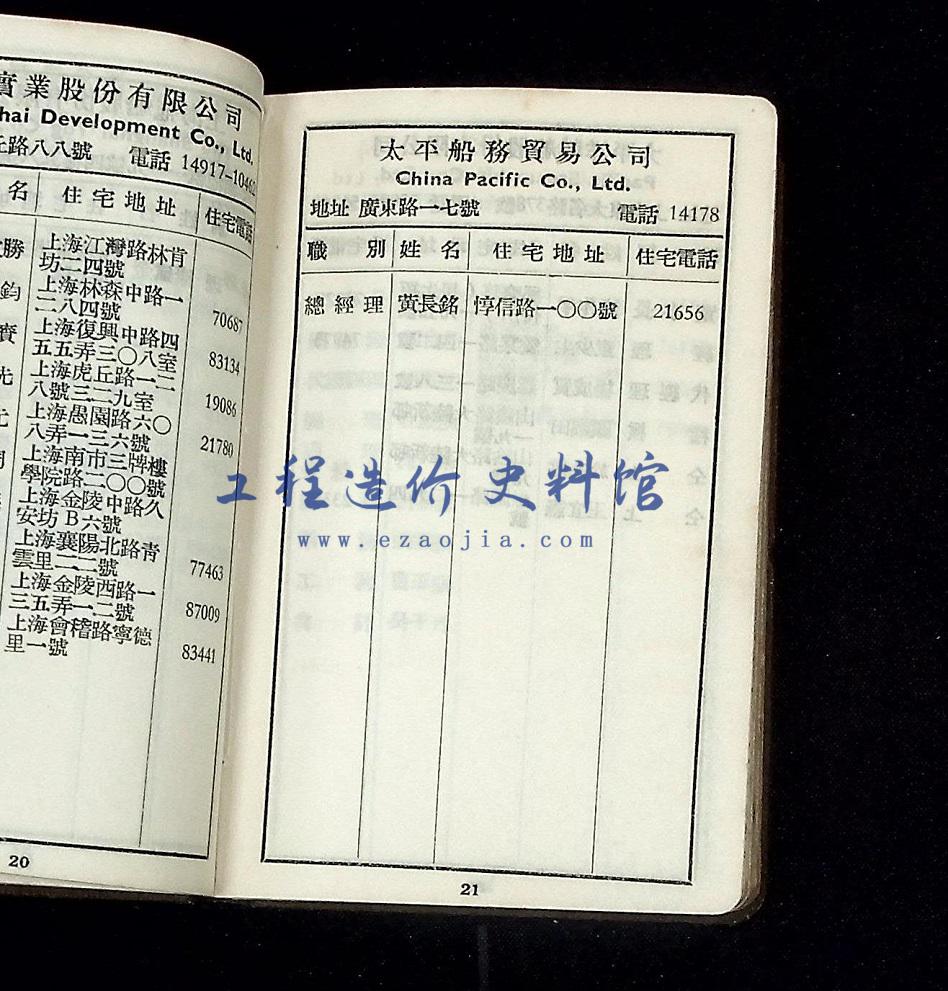 實業股份有限公司
hai Development Co., Ltd.
路八八號 電話 14917-10462
名 住宅地址 住宅電話
勝 上海江灣路林肯
坊二四號
鈞 上海林森中路一
二八四號 70687
寶 上海復興中路四
五五弄三〇八室 83134
先 上海虎丘路一二
八號三二九室 19086
上海愚園路六〇
八弄一三六號 21780
上海南市三牌樓
學院路二〇〇號
上海金陵中路久
安坊B六號
上海襄陽北路青
雲里二二號 77463
上海金陵西路一
三五弄一二號 87009
上海會稽路寧德
里一號 83441
20
太平船務貿易公司
China Pacific Co., Ltd.
地址 廣東路一七號 電話 14178
職別 姓名 住宅地址 住宅電話
總經理 黄長銘 惇信路一〇〇號 21656
21
工程造价史料馆
www.ezaojia.com